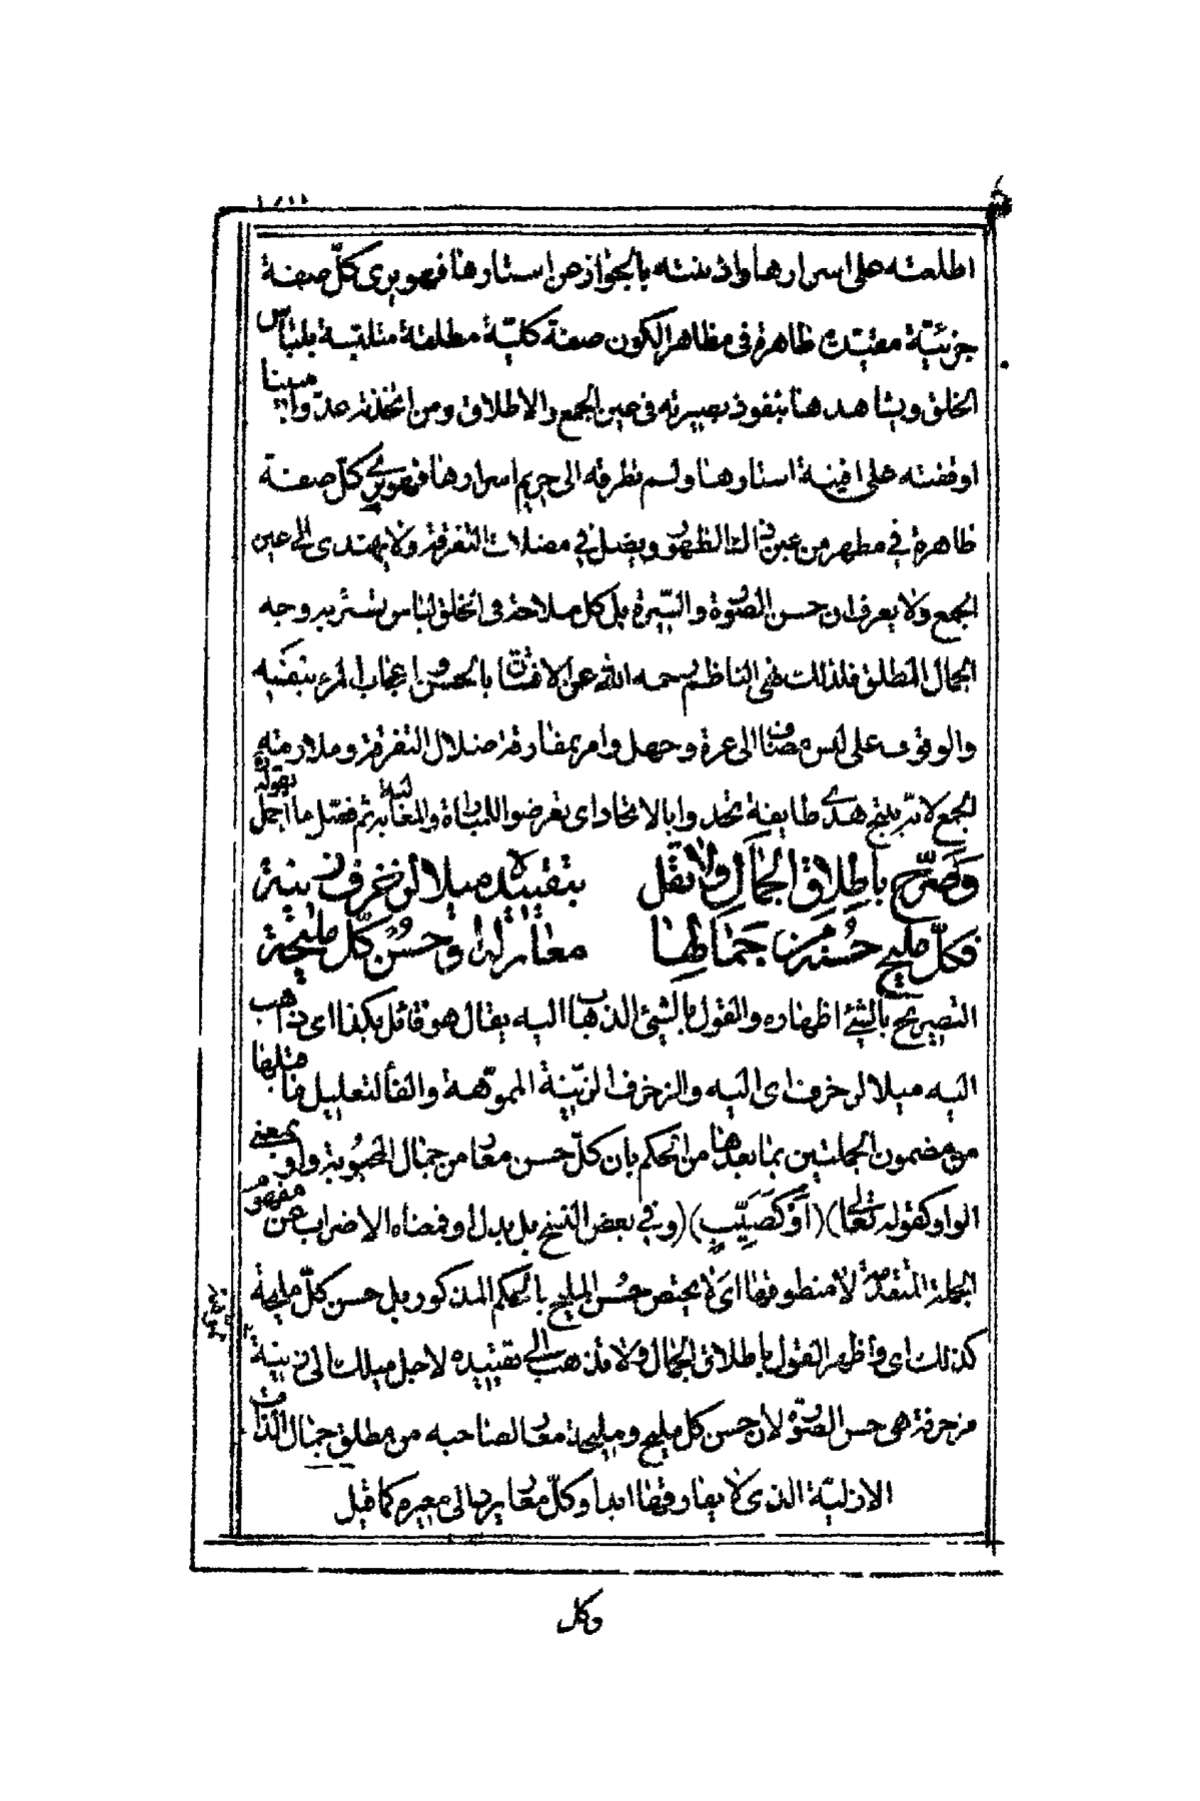 اطلعته على اسرارها واذنته بالجواز عن استارها فهو يرى كلّ صفة
جزئيّة مقيّدة ظاهرة فى مظاهر الكون صفة كليّة مطلقة متلبّسة بلباس
الخلق ويشاهدها بنفوذ بصيرته فى عين الجمع والاطلاق ومن اتخذته عدوّا
اوقفته على افنية استارها ولم تطرقه الى حريم اسرارها فهو يرى كلّ صفة
ظاهرة في مظهر من عين ذلك الظهور ويضل في مضلات التفرقة ولا يهتدى الى عين
الجمع ولا يعرف ان حسن الصّورة والسّيرة بل كل ملاحة فى الخلق لباس تستّر به وجه
الجمال المطلق فلذلك نهى الناظم رحمه الله عن الافتتان بالحسن واعجاب المرء بنفسه
والوقوف على لبس مضافا الى عرة وجهل وامر بمفارقة ضلال التفرقة وملازمة
الجمع لانه ينتج هدى طايفة تحدوا بالاتحاد اى تعرضوا للمباراة والمغالبة به ثم فصّل ما اجمل بقوله
وَصَرِّح باطلاق الجمال ولا تقل بتقييده ميلا لزخرف زينة
فكلّ مليح حُسنه من جمالها معار له او حُسن كلّ مليحة
التصريح بالشئ اظهاره والقول بالشئ الذهاب اليه يقال هو قائل بكذا اى ذاهب
اليه ميلا لزخرف اى اليه والزخرف الزّينة المموّهة والفأ لتعليل ما قبلها
من مضمون الجملتين بما بعدها من الحكم بان كلّ حسن معار من جمال المحبُوبة واو بمعنى
الواو كقوله تعالى (أَوْ كَصَيِّبٍ) (وفي بعض النسخ بل بدل او فمعناه الاضراب عن مفهوم
الجملة المتقدمة لا منطوقها اى لا يختص حُسن المليح بالحكم المذكور بل حسن كلّ مليحة
كذلك اى واظهر القول باطلاق الجمال ولا تذهب الى تقييده لاجل ميلك الى زينة
مزخرفة هى حسن الصّورة لان حسن كل مليح ومليحة معار لصاحبه من مطلق جمال الذات
الازليّة الذى لا يفارقها ابدا وكلّ معار يرد الى معيره كما قيل
وكل